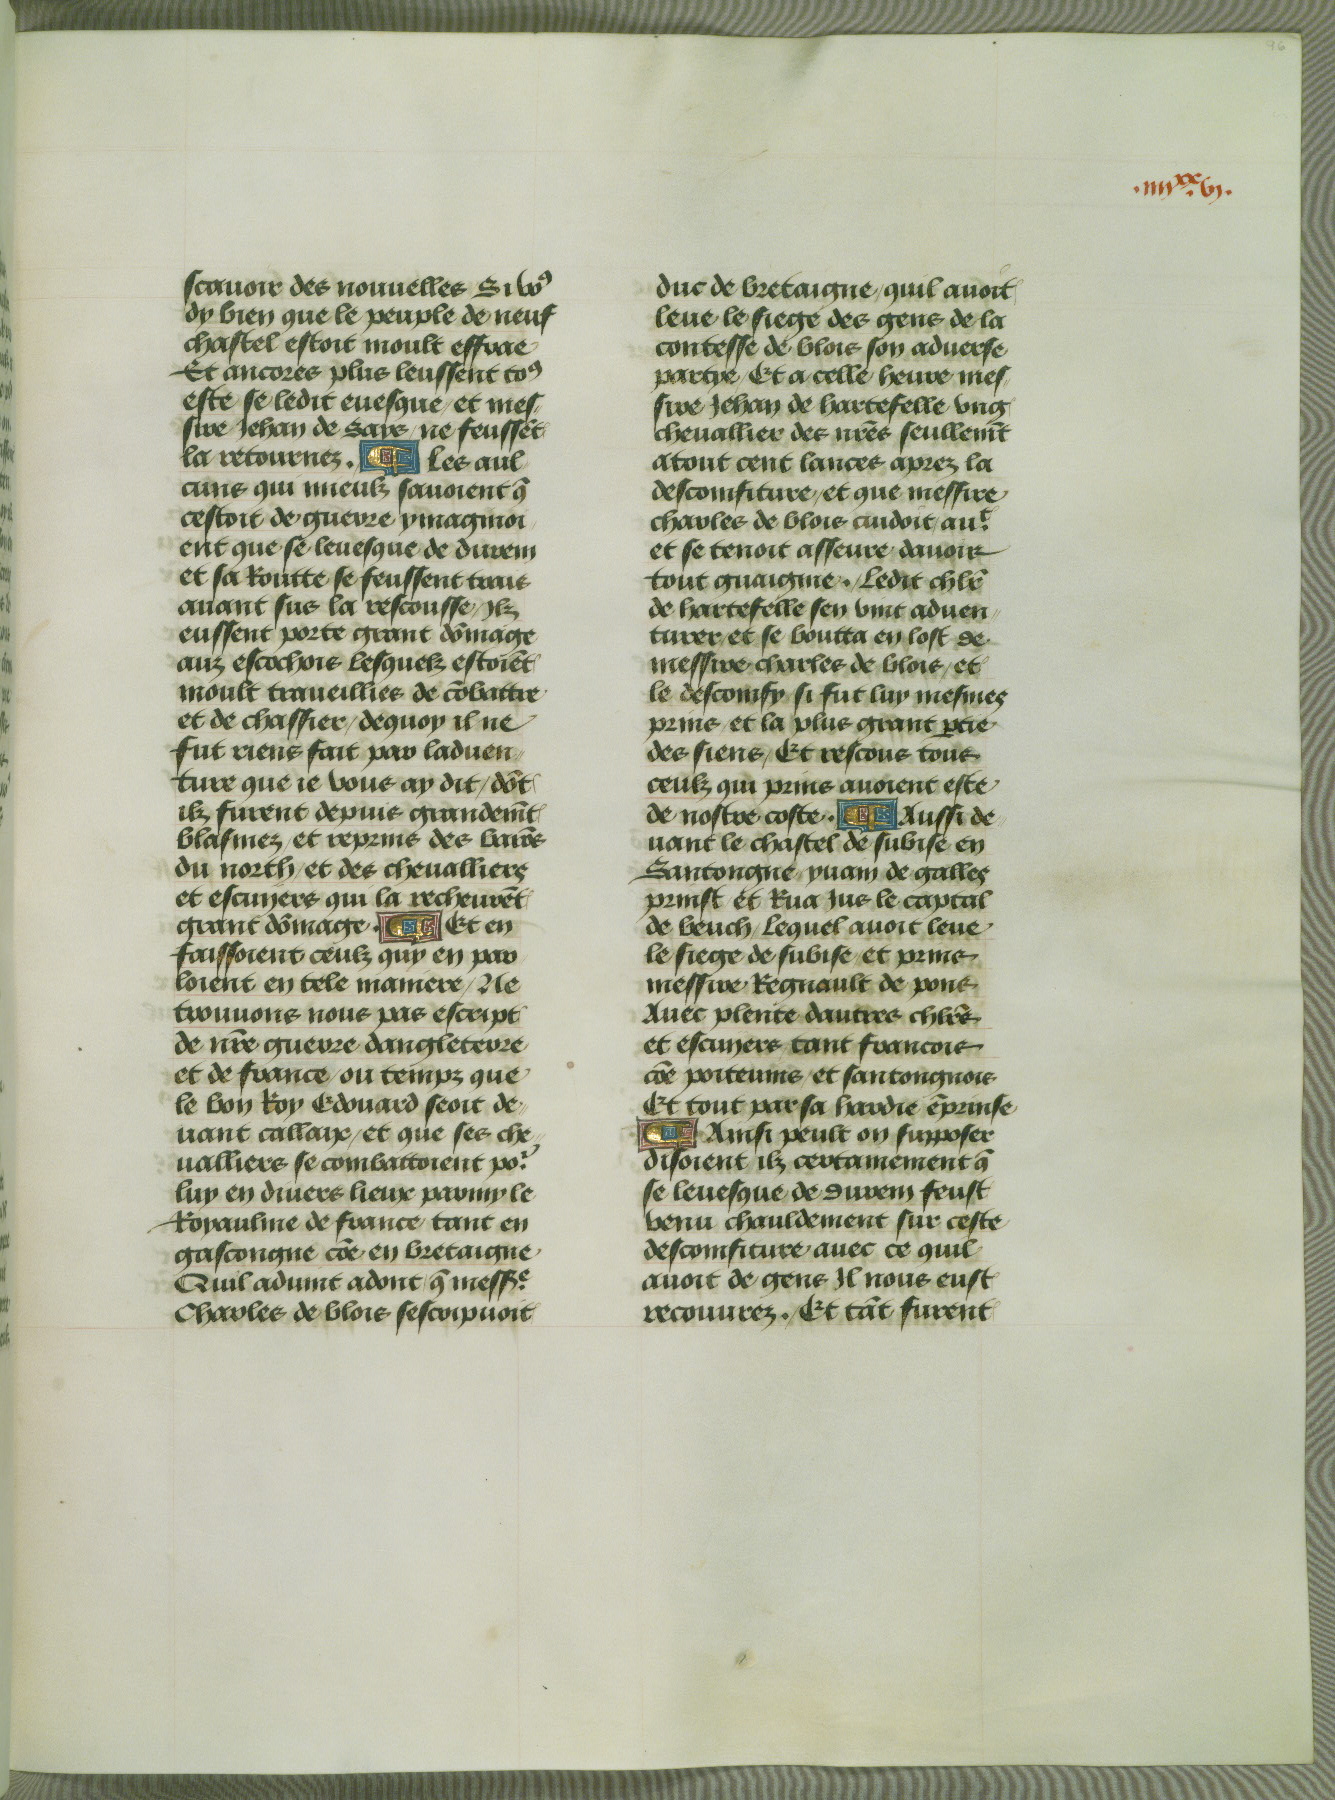 96
.iiijxx.vj.
scauoir des nouuelles Si voꝰ
dy bien que le peuple de neuf
chastel estoit moult effrae
Et ancores plus leussent toꝰ
este se ledit euesque / et mes/
sire Jehan de Say͞s / ne feussēt
la retournez . Les aul
cuns qui mieulz sauoient q̄
cestoit de guerre ymaginoi
ent que se leuesque de durem
et sa Routte se feussent trais
auant sus la rescousse / Ilz
eussent porte grant dōmage
aux escochois lesquelz estoiēt
moult traueillies de cōbattre
et de chassier / dequoy il ne
fut riens fait par laduen/
ture que ie vous ay dit / dōt
ilz furent depuis grandemēt
blasmez / et reprins des barōs
du north / et des chevalliers
et escuiers qui la recheurēt
grant dōmage . Et en
faissoient ceulz quy en par
loient en tele maniere / Ne
trouuons nous pas escript
de nr̄e guerre dangleterre
et de france / ou tempz que
le bon Roy Edouard seoit de/
uant callaix / et que ses che/
ualliers se combattoient poʳ
luy en diuers lieux parmy le
Royaulme de france tant en
gascongne cōe en bretaigne
Quil aduint adont q̄ messʳᵉ
Charles de blois sescripuoit
duc de bretaigne / quil auoit
leue le siege des gens de la
contesse de blois son aduerse
partye / Et a celle heure mes/
sire Jehan de hartefelle vng
cheuallier des nr̄es seullemēt
atout cent lances aprez la
descomfiture / et que messire
charles de blois cuidoit auʳ
et se tenoit asseure dauoir
tout guaignie . / Ledit chl̄r
de hartefelle sen vint aduen/
turer et se boutta en lost de
messire charles de blois / et
le descomfy si fut luy mesmes
prins / et la plus grant ꝑtie
des siens / Et rescous tous
ceulz qui prins auoient este
de nostre coste . Aussi de/
uant le chastel de subise en
Santongne / yuain de galles
prinst et Rua Jus le captal
de beuch / Lequel auoit leue
le siege de subise / et prins
messire Regnault de pons
Auec plente dautres chl̄rs
et escuiers tant francois
cōe poiteuins / et santongnois
Et tout par sa hardie ēprinse
Ainsi peult on supposer
disoient ilz certainement q̄
se leuesque de Durem feust
venu chauldement sur ceste
descomfiture auec ce quil
auoit de gens Il nous eust
recouurez . / Et tāt furent